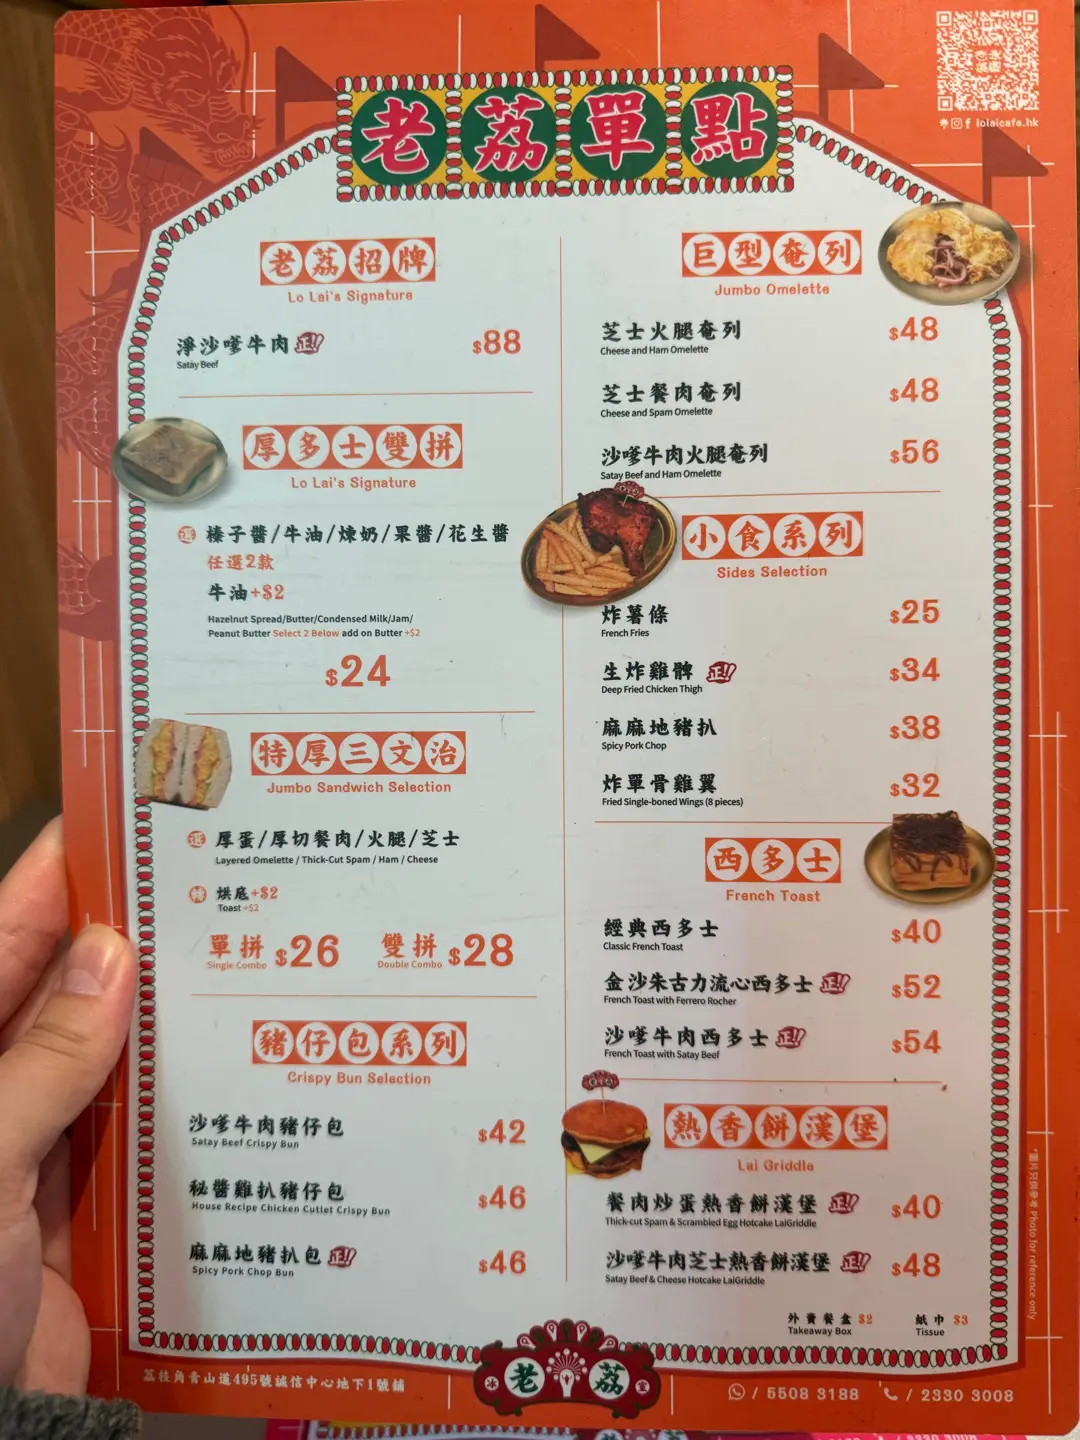 老荔單點
lolaicafe.hk
老荔招牌
Lo Lai's Signature
淨沙嗲牛肉 正!! $88
Satay Beef
厚多士雙拼
Lo Lai's Signature
選 榛子醬/牛油/煉奶/果醬/花生醬
任選2款
牛油+$2
Hazelnut Spread/Butter/Condensed Milk/Jam/
Peanut Butter Select 2 Below add on Butter +$2
$24
特厚三文治
Jumbo Sandwich Selection
選 厚蛋/厚切餐肉/火腿/芝士
Layered Omelette / Thick-Cut Spam / Ham / Cheese
特 烘底+$2
Toast +$2
單拼 $26 雙拼 $28
Single Combo Double Combo
豬仔包系列
Crispy Bun Selection
沙嗲牛肉豬仔包 $42
Satay Beef Crispy Bun
秘醬雞扒豬仔包 $46
House Recipe Chicken Cutlet Crispy Bun
麻麻地豬扒包 正!! $46
Spicy Pork Chop Bun
巨型奄列
Jumbo Omelette
芝士火腿奄列 $48
Cheese and Ham Omelette
芝士餐肉奄列 $48
Cheese and Spam Omelette
沙嗲牛肉火腿奄列 $56
Satay Beef and Ham Omelette
小食系列
Sides Selection
炸薯條 $25
French Fries
生炸雞髀 正!! $34
Deep Fried Chicken Thigh
麻麻地豬扒 $38
Spicy Pork Chop
炸單骨雞翼 $32
Fried Single-boned Wings (8 pieces)
西多士
French Toast
經典西多士 $40
Classic French Toast
金沙朱古力流心西多士 正!! $52
French Toast with Ferrero Rocher
沙嗲牛肉西多士 正!! $54
French Toast with Satay Beef
熱香餅漢堡
Lai Griddle
餐肉炒蛋熱香餅漢堡 正!! $40
Thick-cut Spam & Scrambled Egg Hotcake LaiGriddle
沙嗲牛肉芝士熱香餅漢堡 正!! $48
Satay Beef & Cheese Hotcake LaiGriddle
外賣餐盒 $2 紙巾 $3
Takeaway Box Tissue
*圖片只供參考 Photo for reference only
荔枝角青山道495號誠信中心地下1號舖
冰 老荔 室
/ 5508 3188 / 2330 3008